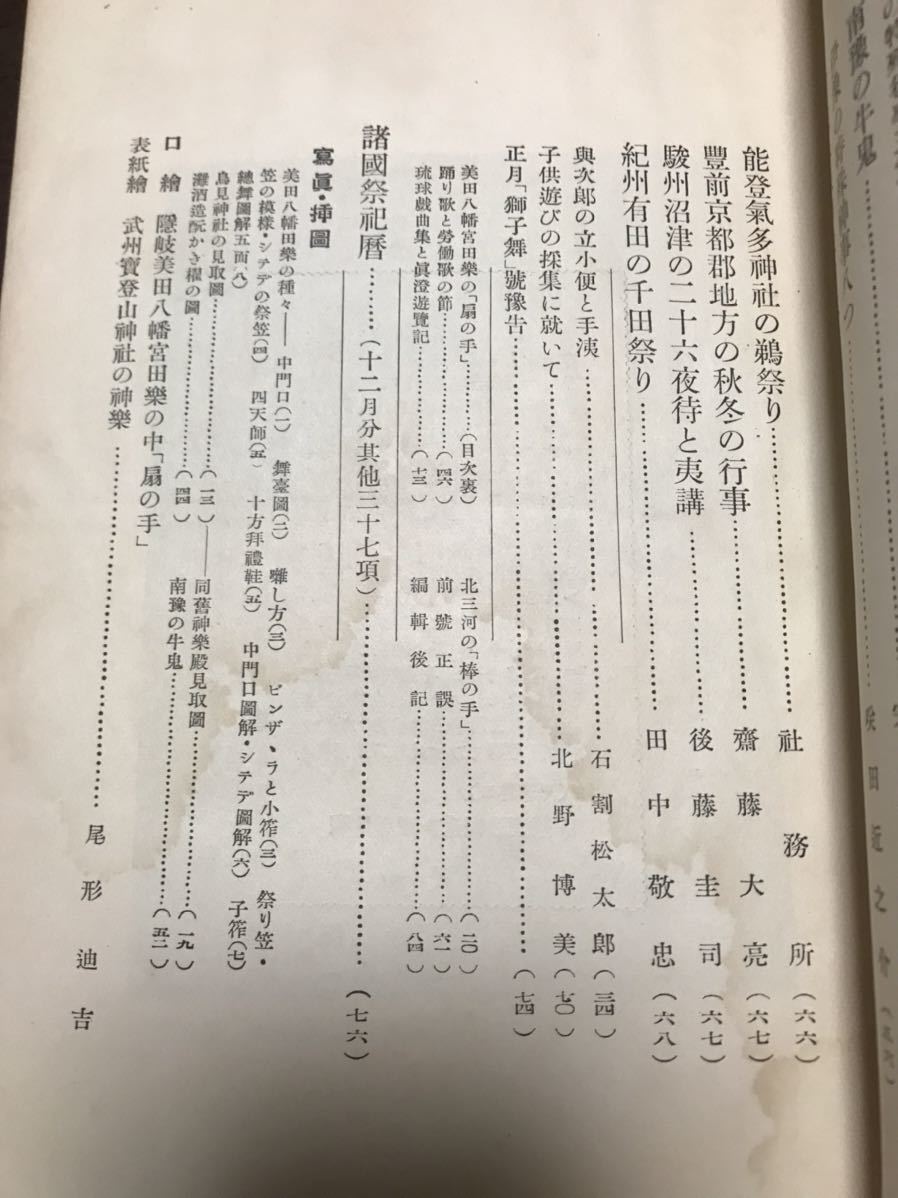 南豫の牛鬼
能登氣多神社の鵜祭り……社務所(六六)
豐前京都郡地方の秋冬の行事……齋藤大亮(六七)
駿州沼津の二十六夜待と夷講……後藤圭司(六七)
紀州有田の千田祭り……田中敬忠(六八)
與次郎の立小便と手洟……石割松太郎(三四)
子供遊びの採集に就いて……北野博美(七〇)
正月「獅子舞」號豫告……(七四)
美田八幡宮田樂の「扇の手」……(目次裏) 北三河の「棒の手」……(二〇)
踊り歌と勞働歌の節……(四六) 前號正誤……(六一)
琉球戯曲集と眞澄遊覽記……(一三) 編輯後記……(八四)
諸國祭祀暦……(十二月分其他三十七項)……(七六)
寫眞・挿圖
美田八幡田樂の種々——中門口(一) 舞臺圖(二) 囃し方(三) ビンザヽラと小筰(三) 祭り笠・
笠の模樣・シテデの祭笠(四) 四天師(五) 十方拜禮鞋(五) 中門口圖解・シテデ圖解(六) 子筰(七)
總舞圖解五面(八)
鳥見神社の見取圖……(一三)——同舊神樂殿見取圖……(一九)
灘酒造酛かき櫂の圖……(四四) 南豫の牛鬼……(五二)
口繪 隱岐美田八幡宮田樂の中「扇の手」
表紙繪 武州寶登山神社の神樂……尾形迪吉